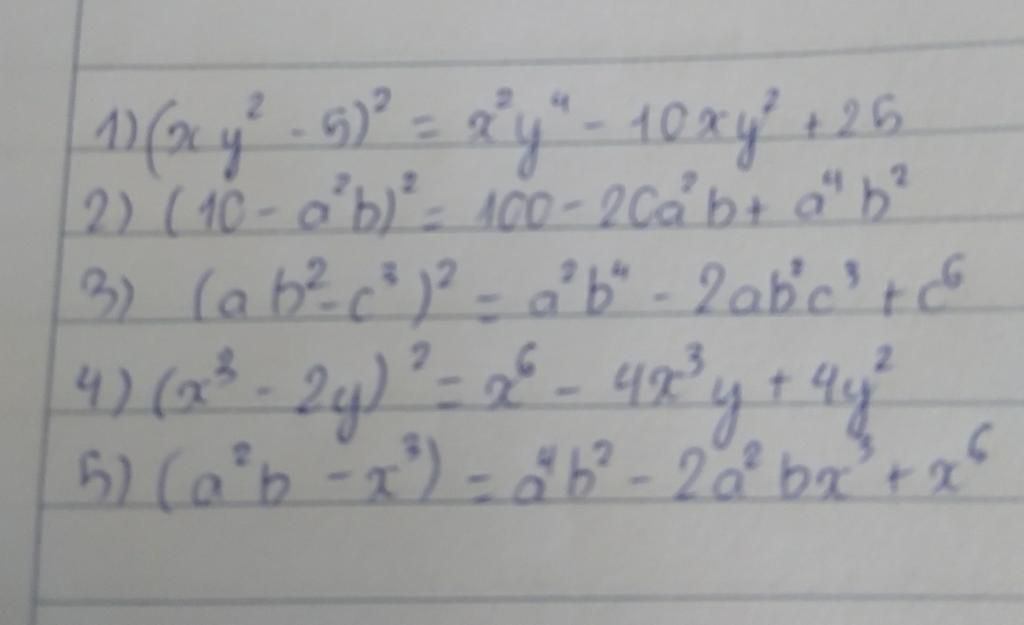 1) (xy² - 5)² = x²y⁴ - 10xy² + 25
2) (10 - a²b)² = 100 - 20a²b + a⁴b²
3) (ab² - c³)² = a²b⁴ - 2ab²c³ + c⁶
4) (x³ - 2y)² = x⁶ - 4x³y + 4y²
5) (a²b - x³) = a⁴b² - 2a²bx³ + x⁶